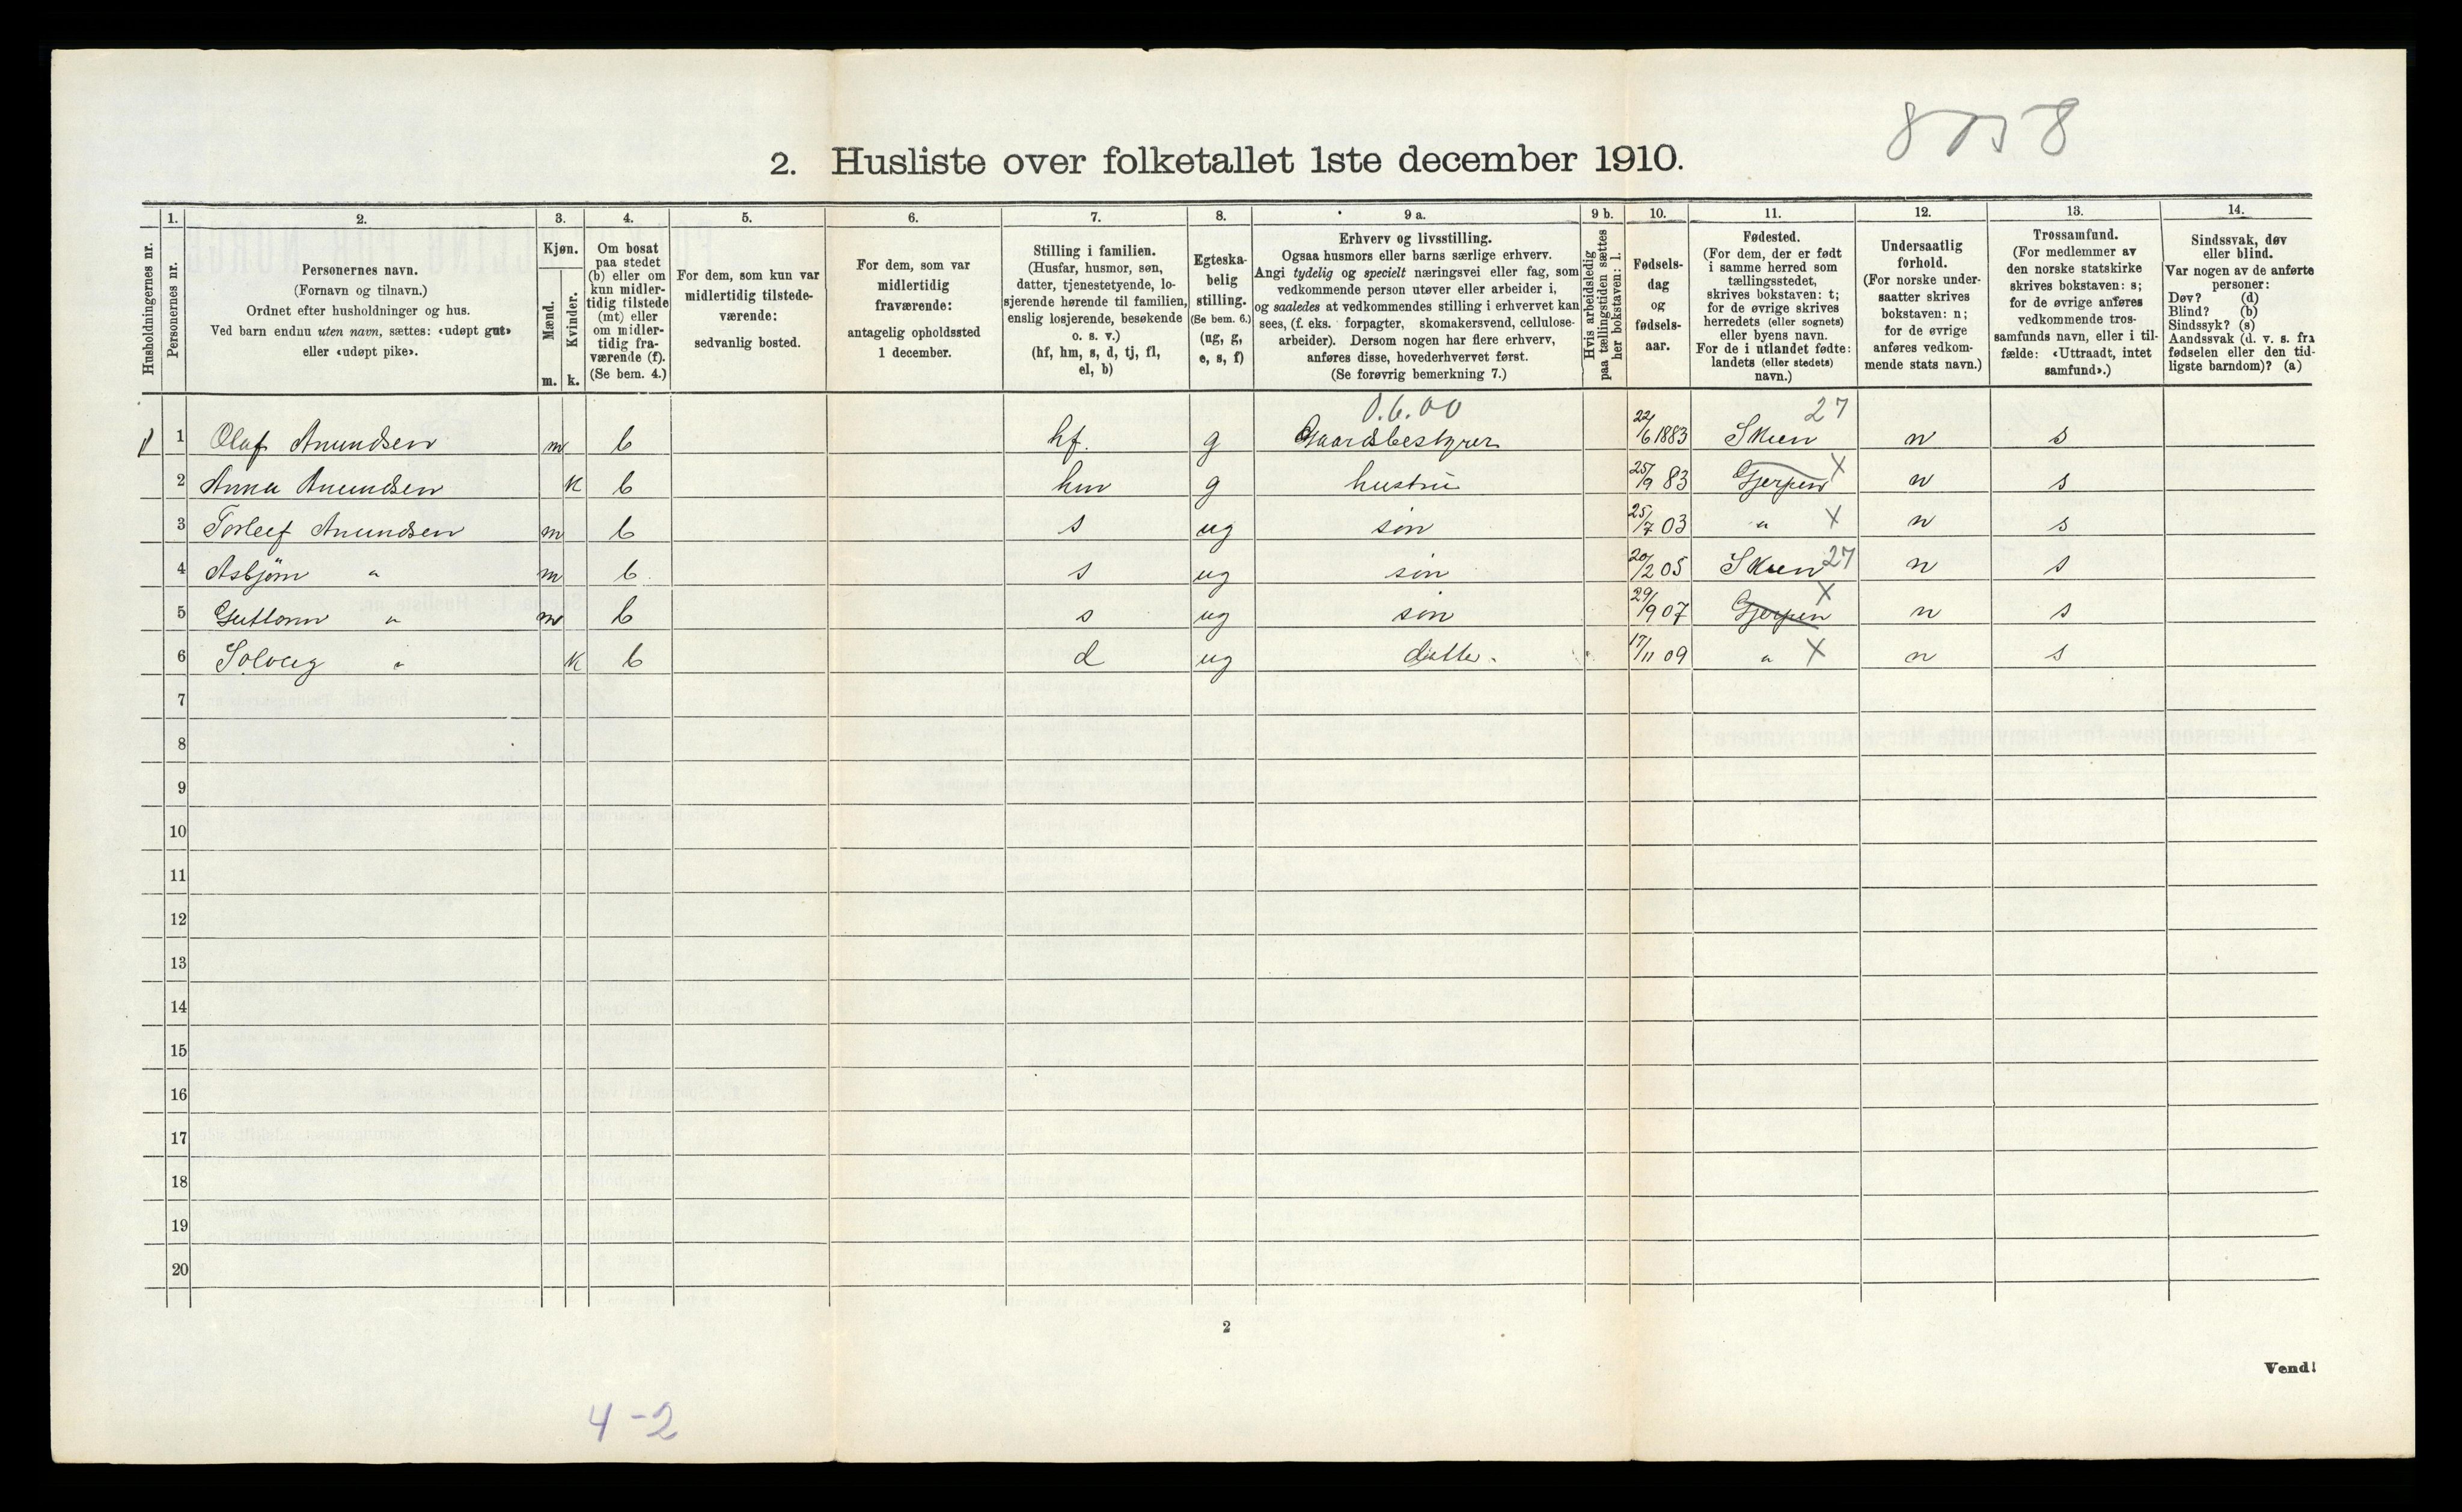 8058
2. Husliste over folketallet 1ste december 1910.
Husholdningernes nr.
1. Personernes nr.
2. Personernes navn.
(Fornavn og tilnavn.)
Ordnet efter husholdninger og hus.
Ved barn endnu uten navn, sættes: «udøpt gut»
eller «udøpt pike».
3. Kjøn.
Mænd. m.
Kvinder. k.
4. Om bosat
paa stedet
(b) eller om
kun midler-
tidig tilstede
(mt) eller
om midler-
tidig fra-
værende (f).
(Se bem. 4.)
5. For dem, som kun var
midlertidig tilstede-
værende:
sedvanlig bosted.
6. For dem, som var
midlertidig
fraværende:
antagelig opholdssted
1 december.
7. Stilling i familien.
(Husfar, husmor, søn,
datter, tjenestetyende, lo-
sjerende hørende til familien,
enslig losjerende, besøkende
o. s. v.)
(hf, hm, s, d, tj, fl,
el, b)
8. Egteska-
belig
stilling.
(Se bem. 6.)
(ug, g,
e, s, f)
9 a. Erhverv og livsstilling.
Ogsaa husmors eller barns særlige erhverv.
Angi tydelig og specielt næringsvei eller fag, som
vedkommende person utøver eller arbeider i,
og saaledes at vedkommendes stilling i erhvervet kan
sees, (f. eks. forpagter, skomakersvend, cellulose-
arbeider). Dersom nogen har flere erhverv,
anføres disse, hovederhvervet først.
(Se forøvrig bemerkning 7.)
9 b. Hvis arbeidsledig
paa tællingstiden sættes
her bokstaven: l.
10. Fødsels-
dag
og
fødsels-
aar.
11. Fødested.
(For dem, der er født
i samme herred som
tællingsstedet,
skrives bokstaven: t;
for de øvrige skrives
herredets (eller sognets)
eller byens navn.
For de i utlandet fødte:
landets (eller stedets)
navn.)
12. Undersaatlig
forhold.
(For norske under-
saatter skrives
bokstaven: n;
for de øvrige
anføres vedkom-
mende stats navn.)
13. Trossamfund.
(For medlemmer av
den norske statskirke
skrives bokstaven: s;
for de øvrige anføres
vedkommende tros-
samfunds navn, eller i til-
fælde: «Uttraadt, intet
samfund».)
14. Sindssvak, døv
eller blind.
Var nogen av de anførte
personer:
Døv? (d)
Blind? (b)
Sindssyk? (s)
Aandssvak (d. v. s. fra
fødselen eller den tid-
ligste barndom)? (a)
0.6.00 27
1 Olaf Anundsen m b hf. g Gaardsbestyrer 22/6 1883 Skien n s
2 Anna Anundsen k b hm g hustru 25/9 83 Gjerpen X n s
3 Torleif Anundsen m b s ug søn 25/7 03 " X n s
4 Asbjørn " m b s ug søn 20/2 05 Skien 27 n s
5 Guttorm " m b s ug søn 29/9 07 Gjerpen X n s
6 Solveig " k b d ug datter 17/11 09 " X n s
7
8
9
10
11
12
13
14
15
16
17
18
19
20
2
Vend!
4-2